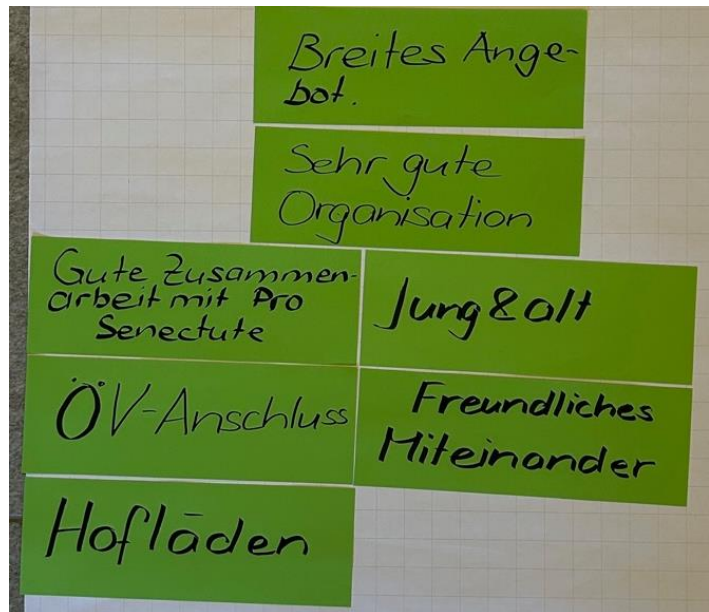 Breites Ange-
bot.
Sehr gute
Organisation
Gute Zusammen-
arbeit mit Pro
Senectute
Jung & alt
ÖV-Anschluss
Freundliches
Miteinander
Hofläden